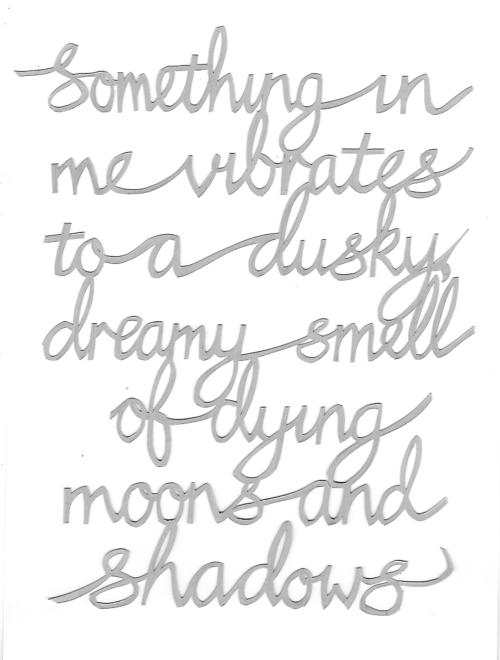 Something in
me vibrates
to a dusky,
dreamy smell
of dying
moons and
shadows